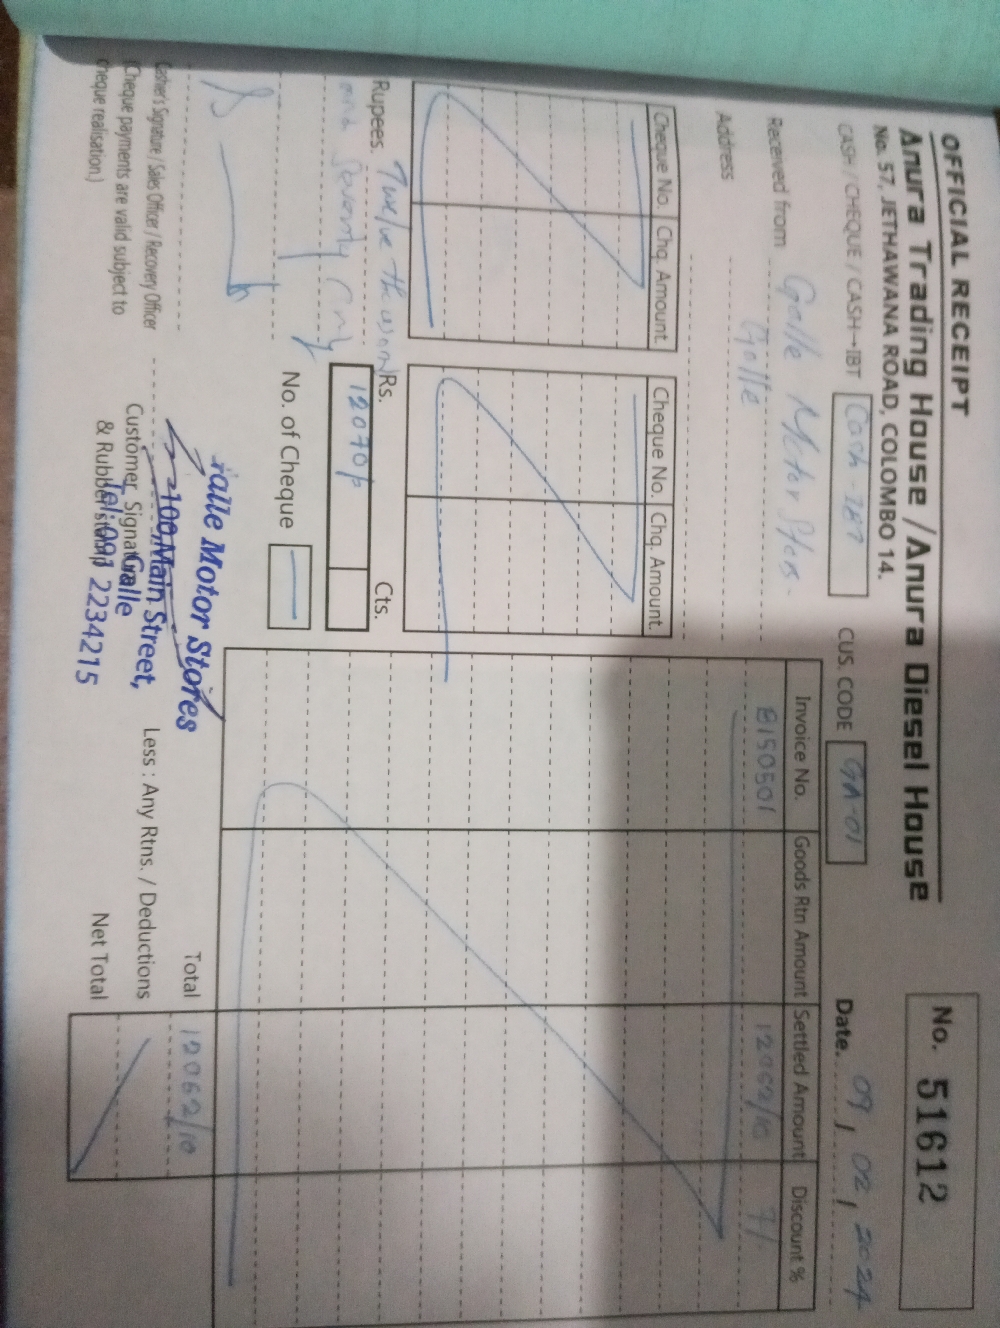 OFFICIAL RECEIPT
Anura Trading House / Anura Diesel House
No. 57, JETHAWANA ROAD, COLOMBO 14.
No. 51612
CASH / CHEQUE / CASH→IBT Cash CUS. CODE GA-01 Date. 09 / 02 / 2024
Received from Galle Motor Stores
Galle
Address
Cheque No. Chq. Amount. Cheque No. Chq. Amount.
Invoice No. Goods Rtn Amount Settled Amount Discount %
B150501 12062/10 7/
Rupees. Twelve thousand
and Seventy Only
Rs. Cts.
12070/
No. of Cheque
Cashier's Signature / Sales Officer / Recovery Officer
(Cheque payments are valid subject to
cheque realisation.)
Customer Signature
& Rubber stamp
Galle Motor Stores
100, Main Street,
Galle
Tel: 091 2234215
Total 12062/10
Less : Any Rtns. / Deductions
Net Total